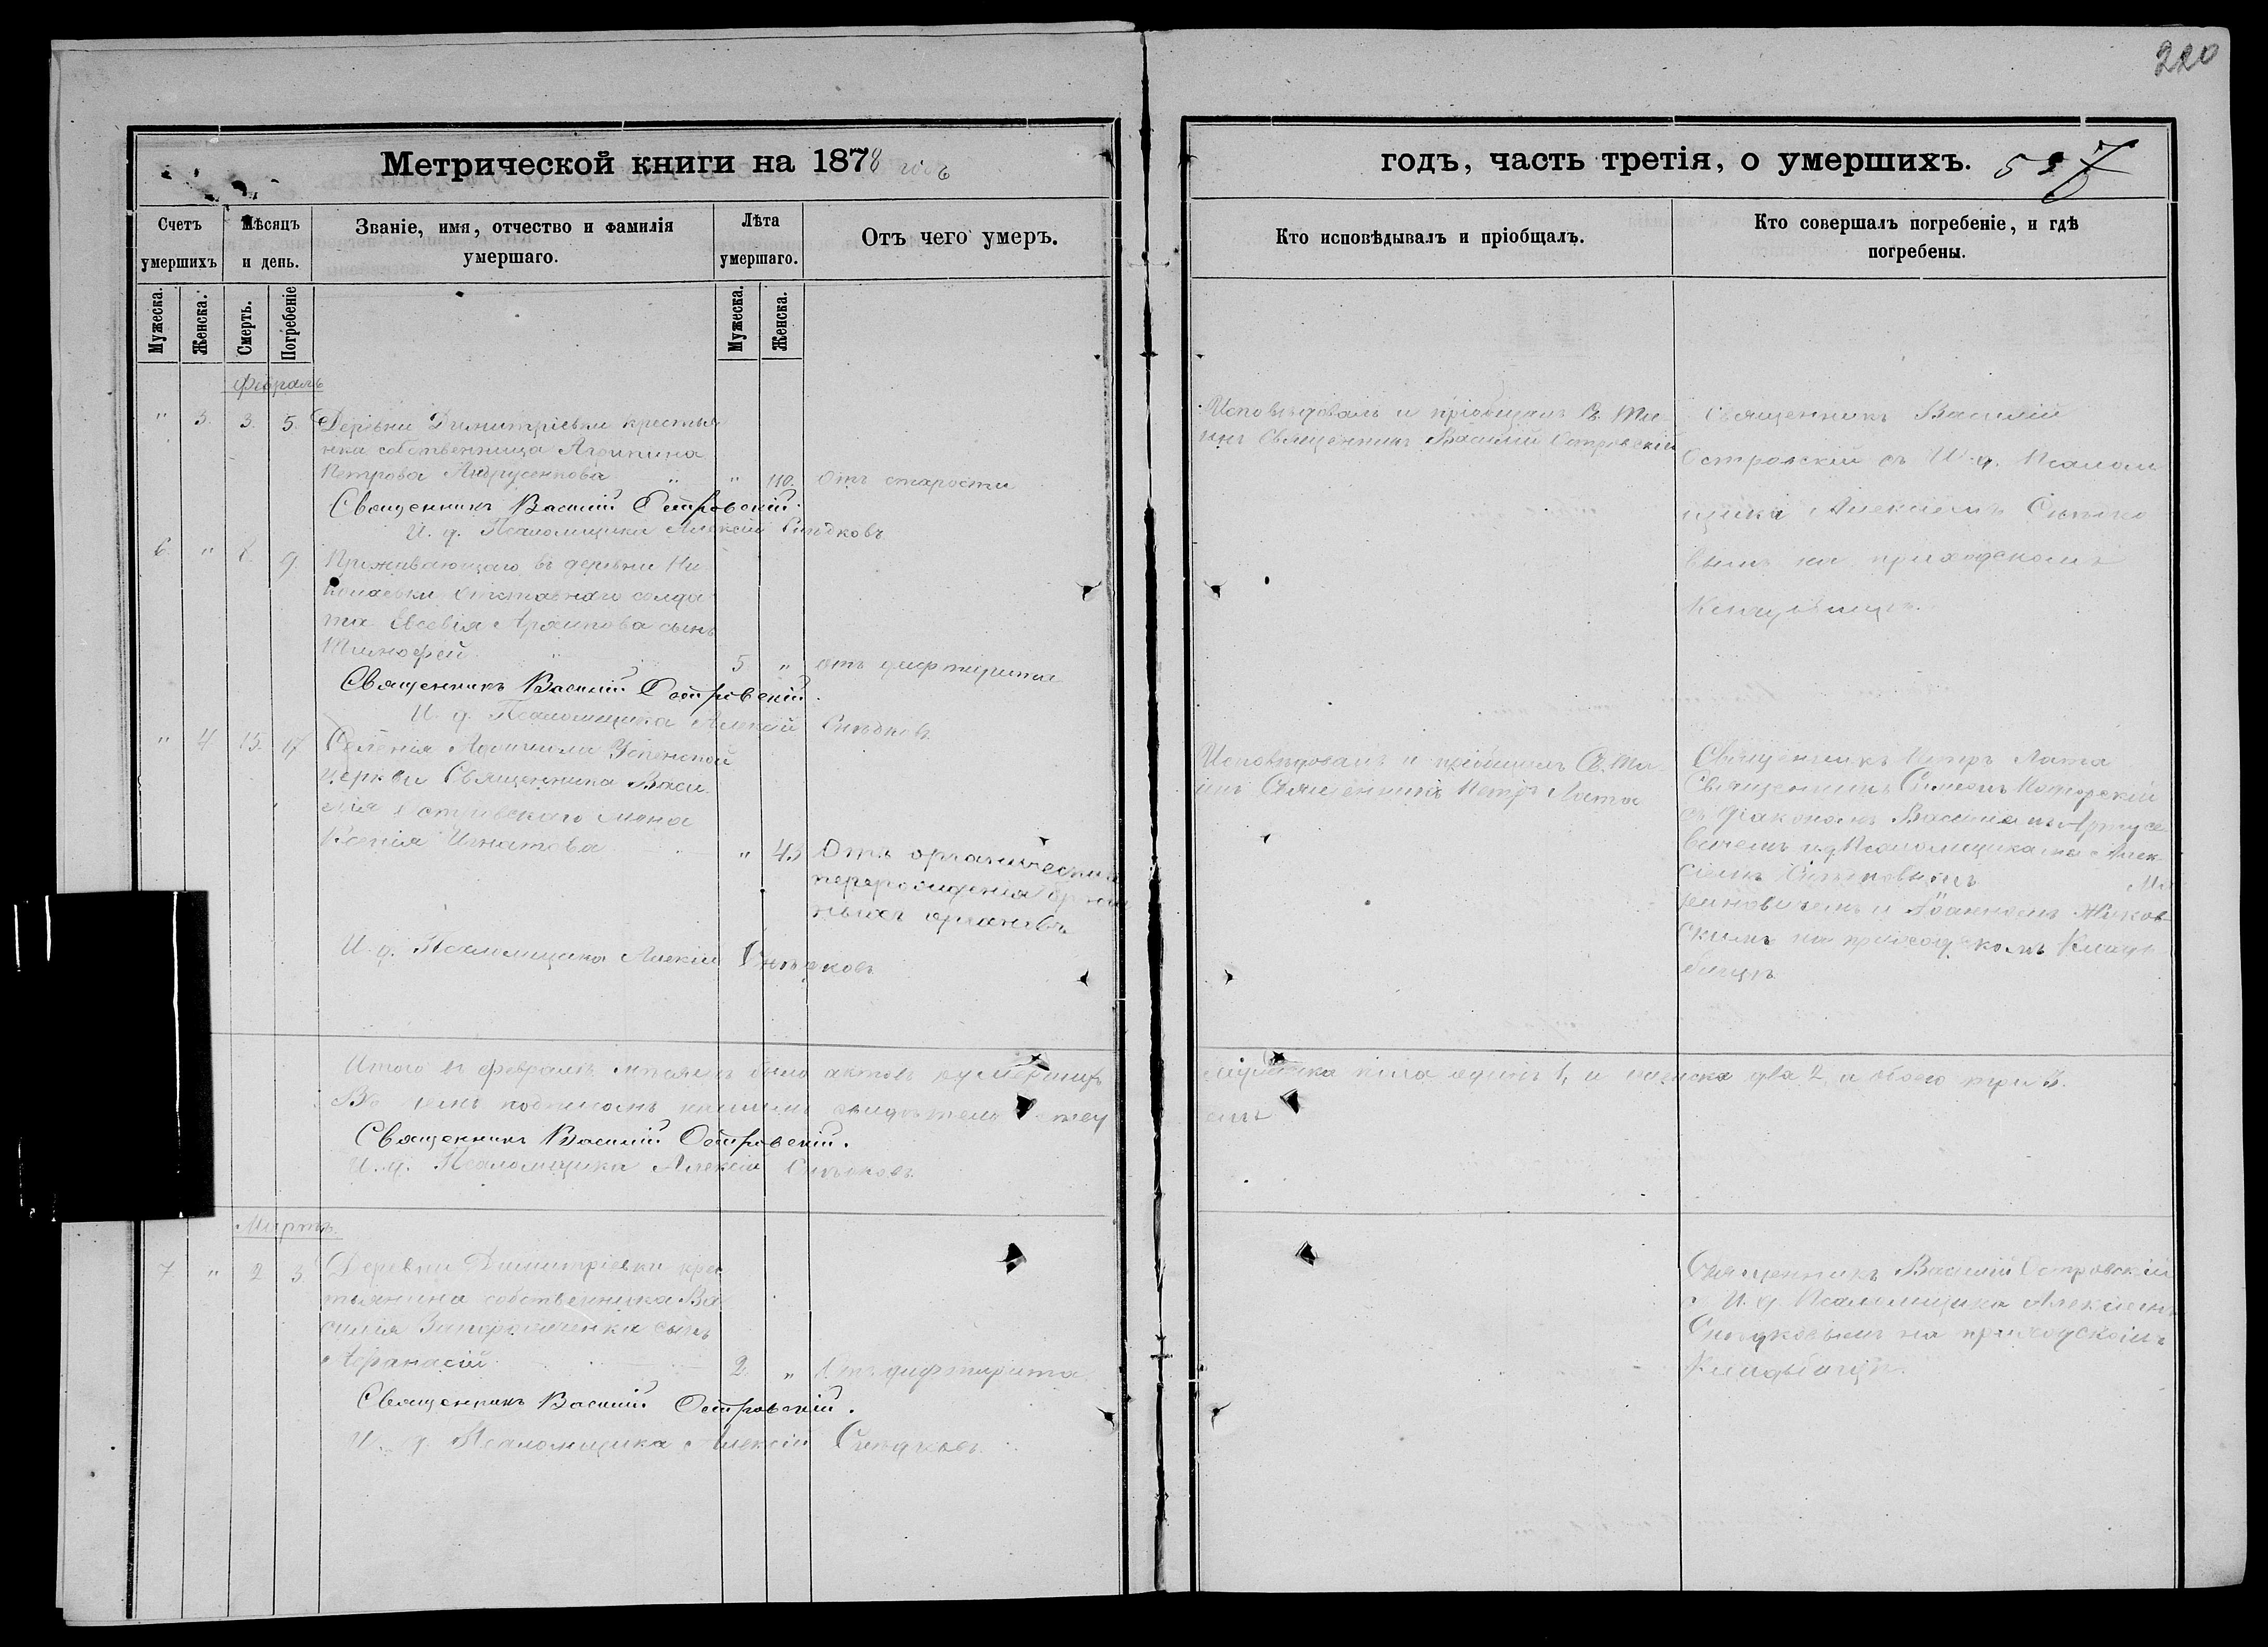 220
Метрической книги на 1878 годъ
годъ, часть третія, о умершихъ.
Счетъ умершихъ
Мѣсяцъ и день.
Званіе, имя, отчество и фамилія умершаго.
Лѣта умершаго.
Отъ чего умеръ.
Кто исповѣдывалъ и пріобщалъ.
Кто совершалъ погребеніе, и гдѣ погребены.
Мужеска.
Женска.
Смерть.
Погребеніе
Мужеска.
Женска.
Февраль
" 3. 3. 5. Деревни Димитріевки крестья
нка собственница Агрипина
Петрова Андрусенкова " " 110. Отъ старости
Священникъ Василій Островскій.
И. д. Псаломщика Алексій Снѣдковъ
Исповѣдовалъ и пріобщилъ Св. Та-
инъ Священникъ Василій Островскій
Священникъ Василій
Островскій съ И. д. Псалом
щика Алексіемъ Снѣдко
вымъ на приходскомъ
Кладбищѣ.
6. " 8. 9. Проживающаго въ деревни Ни
колаевки отставнаго солда
та Евсевія Архипова сынъ
Тимофей 5 " отъ дифтерита
Священникъ Василій Островскій.
И. д. Псаломщика Алексій Снѣдковъ.
" 4 15. 17 Селенія Успенской
церкви Священника Васи
лія Островскаго жена
Ксенія Игнатова " 43 Отъ органическаго
перерожденія
органовъ
И. д. Псаломщика Алексій Снѣдковъ
Исповѣдовалъ и пріобщилъ Св. Та-
инъ Священникъ Петръ Лата
Священникъ Петръ Лата
Священникъ Симеонъ
съ Діакономъ Василіемъ Артусе
вичемъ и. д. Псаломщиками Алек
сіемъ Снѣдковымъ
и Іоанномъ Жуков
скимъ на приходскомъ Клад
бищѣ
Итого въ февралѣ мѣсяцѣ было актовъ о умершихъ
мужеска пола одинъ 1, и женска два 2, а обоего три 3.
Въ чемъ подписомъ нашимъ свидѣтельствуемъ
Священникъ Василій Островскій.
И. д. Псаломщика Алексій Снѣдковъ.
Мартъ.
7 " 2 3 Деревни Димитріевки крес
тьянина собственника Ва
силія Запорощенка сынъ
Афанасій 2. " Отъ дифтерита.
Священникъ Василій Островскій.
И. д. Псаломщика Алексій Снѣдковъ.
Священникъ Василій Островскій
с И. д. Псаломщика Алексіемъ
Снѣдковымъ на приходскомъ
Кладбищѣ.